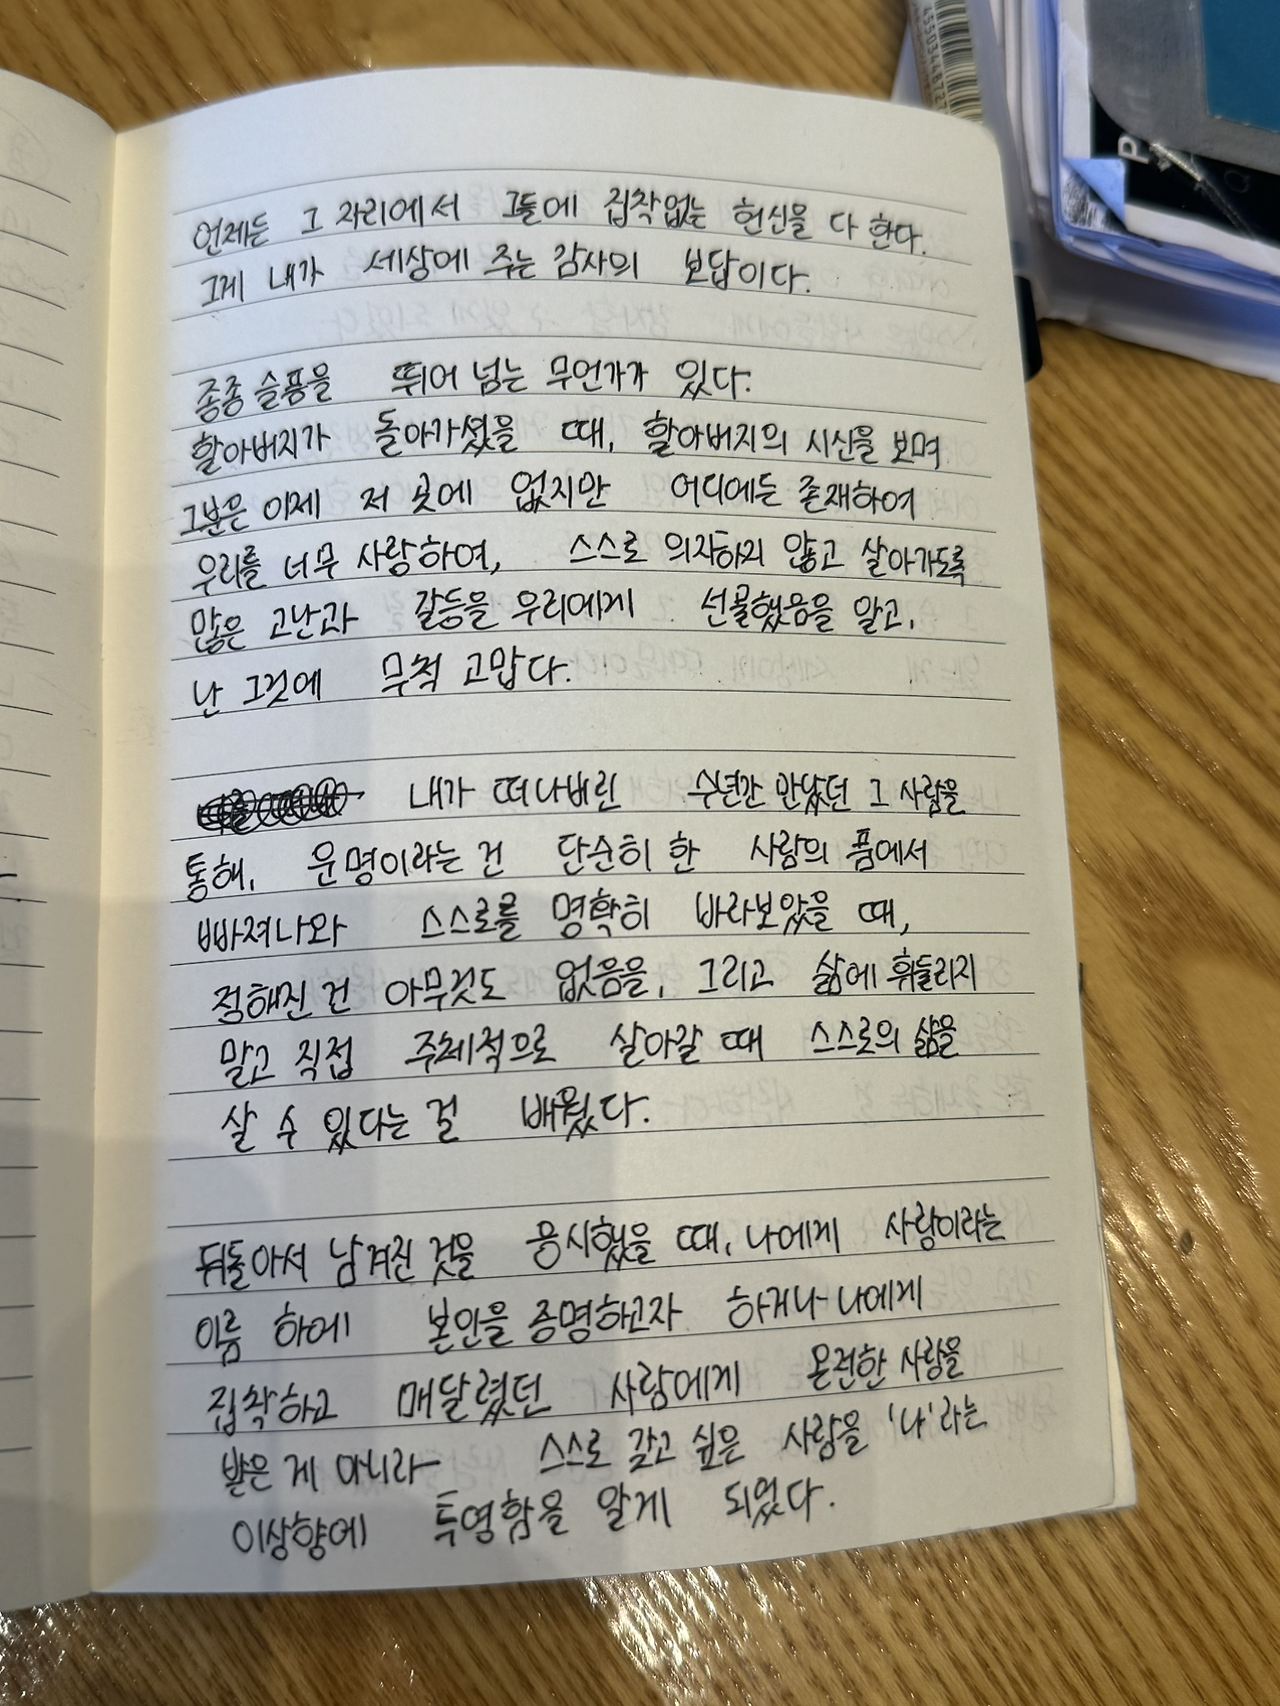 언제든 그 자리에서 그들에 집착없는 헌신을 다 한다.
그게 내가 세상에 주는 감사의 보답이다.
종종 슬픔을 뛰어 넘는 무언가가 있다.
할아버지가 돌아가셨을 때, 할아버지의 시신을 보며
그분은 이제 저 곳에 없지만 어디에든 존재하여
우리를 너무 사랑하여, 스스로 의지하지 않고 살아가도록
많은 고난과 갈등을 우리에게 선물했음을 알고,
난 그것에 무척 고맙다.
내가 떠나버린 수년간 만났던 그 사람을
통해, 운명이라는 건 단순히 한 사람의 품에서
빠져나와 스스로를 명확히 바라보았을 때,
정해진 건 아무것도 없음을, 그리고 삶에 휘둘리지
말고 직접 주체적으로 살아갈 때 스스로의 삶을
살 수 있다는 걸 배웠다.
뒤돌아서 남겨진 것을 응시했을 때, 나에게 사랑이라는
이름 하에 본인을 증명하고자 하거나 나에게
집착하고 매달렸던 사람에게 온전한 사랑을
받은 게 아니라 스스로 갖고 싶은 사람을 '나'라는
이상향에 투영함을 알게 되었다.